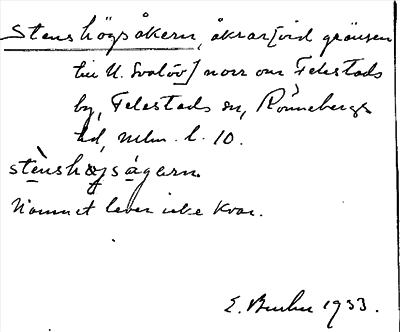 Stenshögsåkern, åkrar [vid gränsen
till N. Svalöv] norr om Felestads
by, Felestads sn, Rönnebergs
hd, Mlm. l. 10.
stènshøgságarn
Namnet lever icke kvar.
E. 1933.